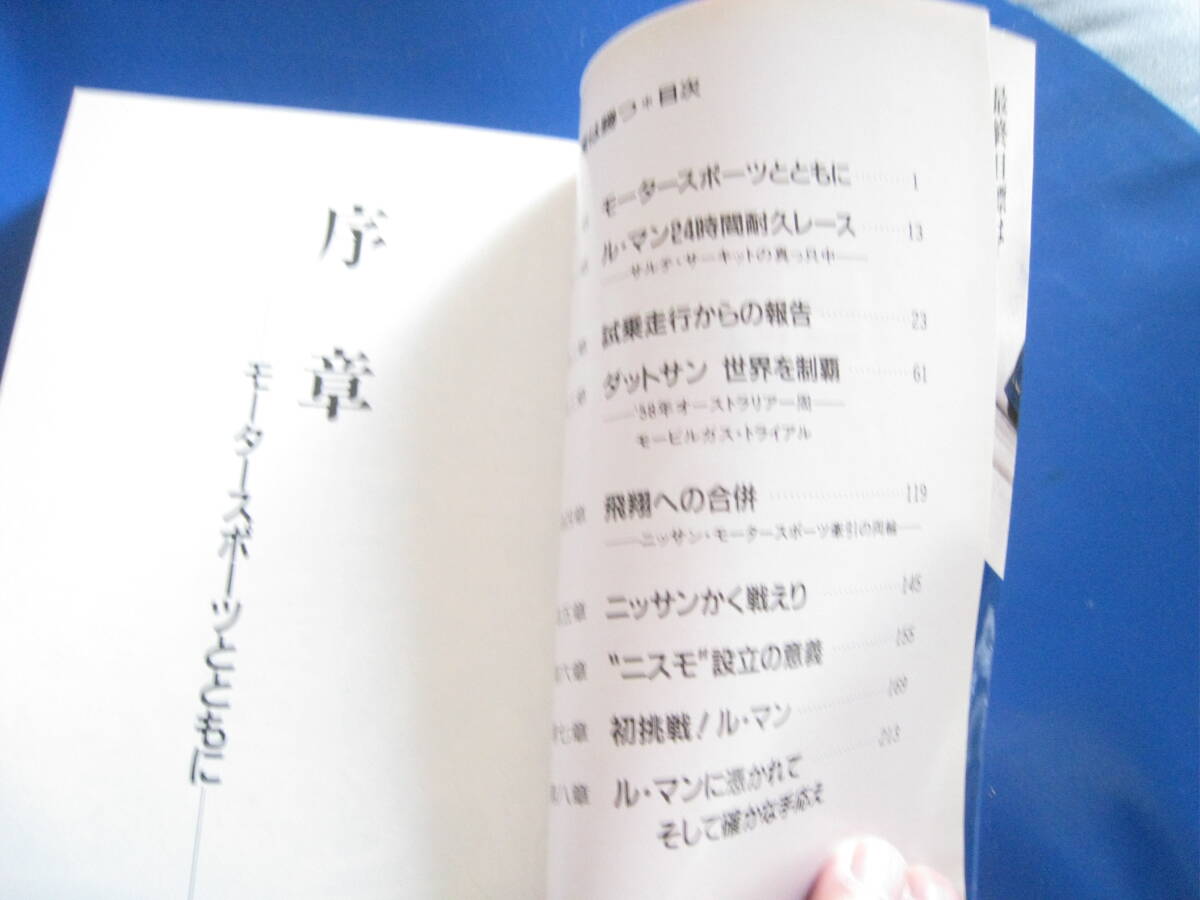 序章
モータースポーツとともに
は勝つ＊目次
モータースポーツとともに………1
ル・マン24時間耐久レース……13
——サルテ・サーキットの真っ只中——
試乗走行からの報告…………23
ダットサン 世界を制覇………61
——'58年オーストラリア一周——
モービルガス・トライアル
飛翔への合併……………119
——ニッサン・モータースポーツ牽引の両輪——
五章 ニッサンかく戦えり………145
六章 "ニスモ"設立の意義………155
七章 初挑戦！ル・マン………169
八章 ル・マンに憑かれて………213
そして確かな手応え
最終目標は